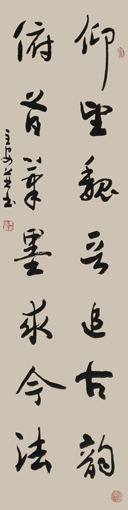 仰望魏晋追古韵
俯首笔墨求今法